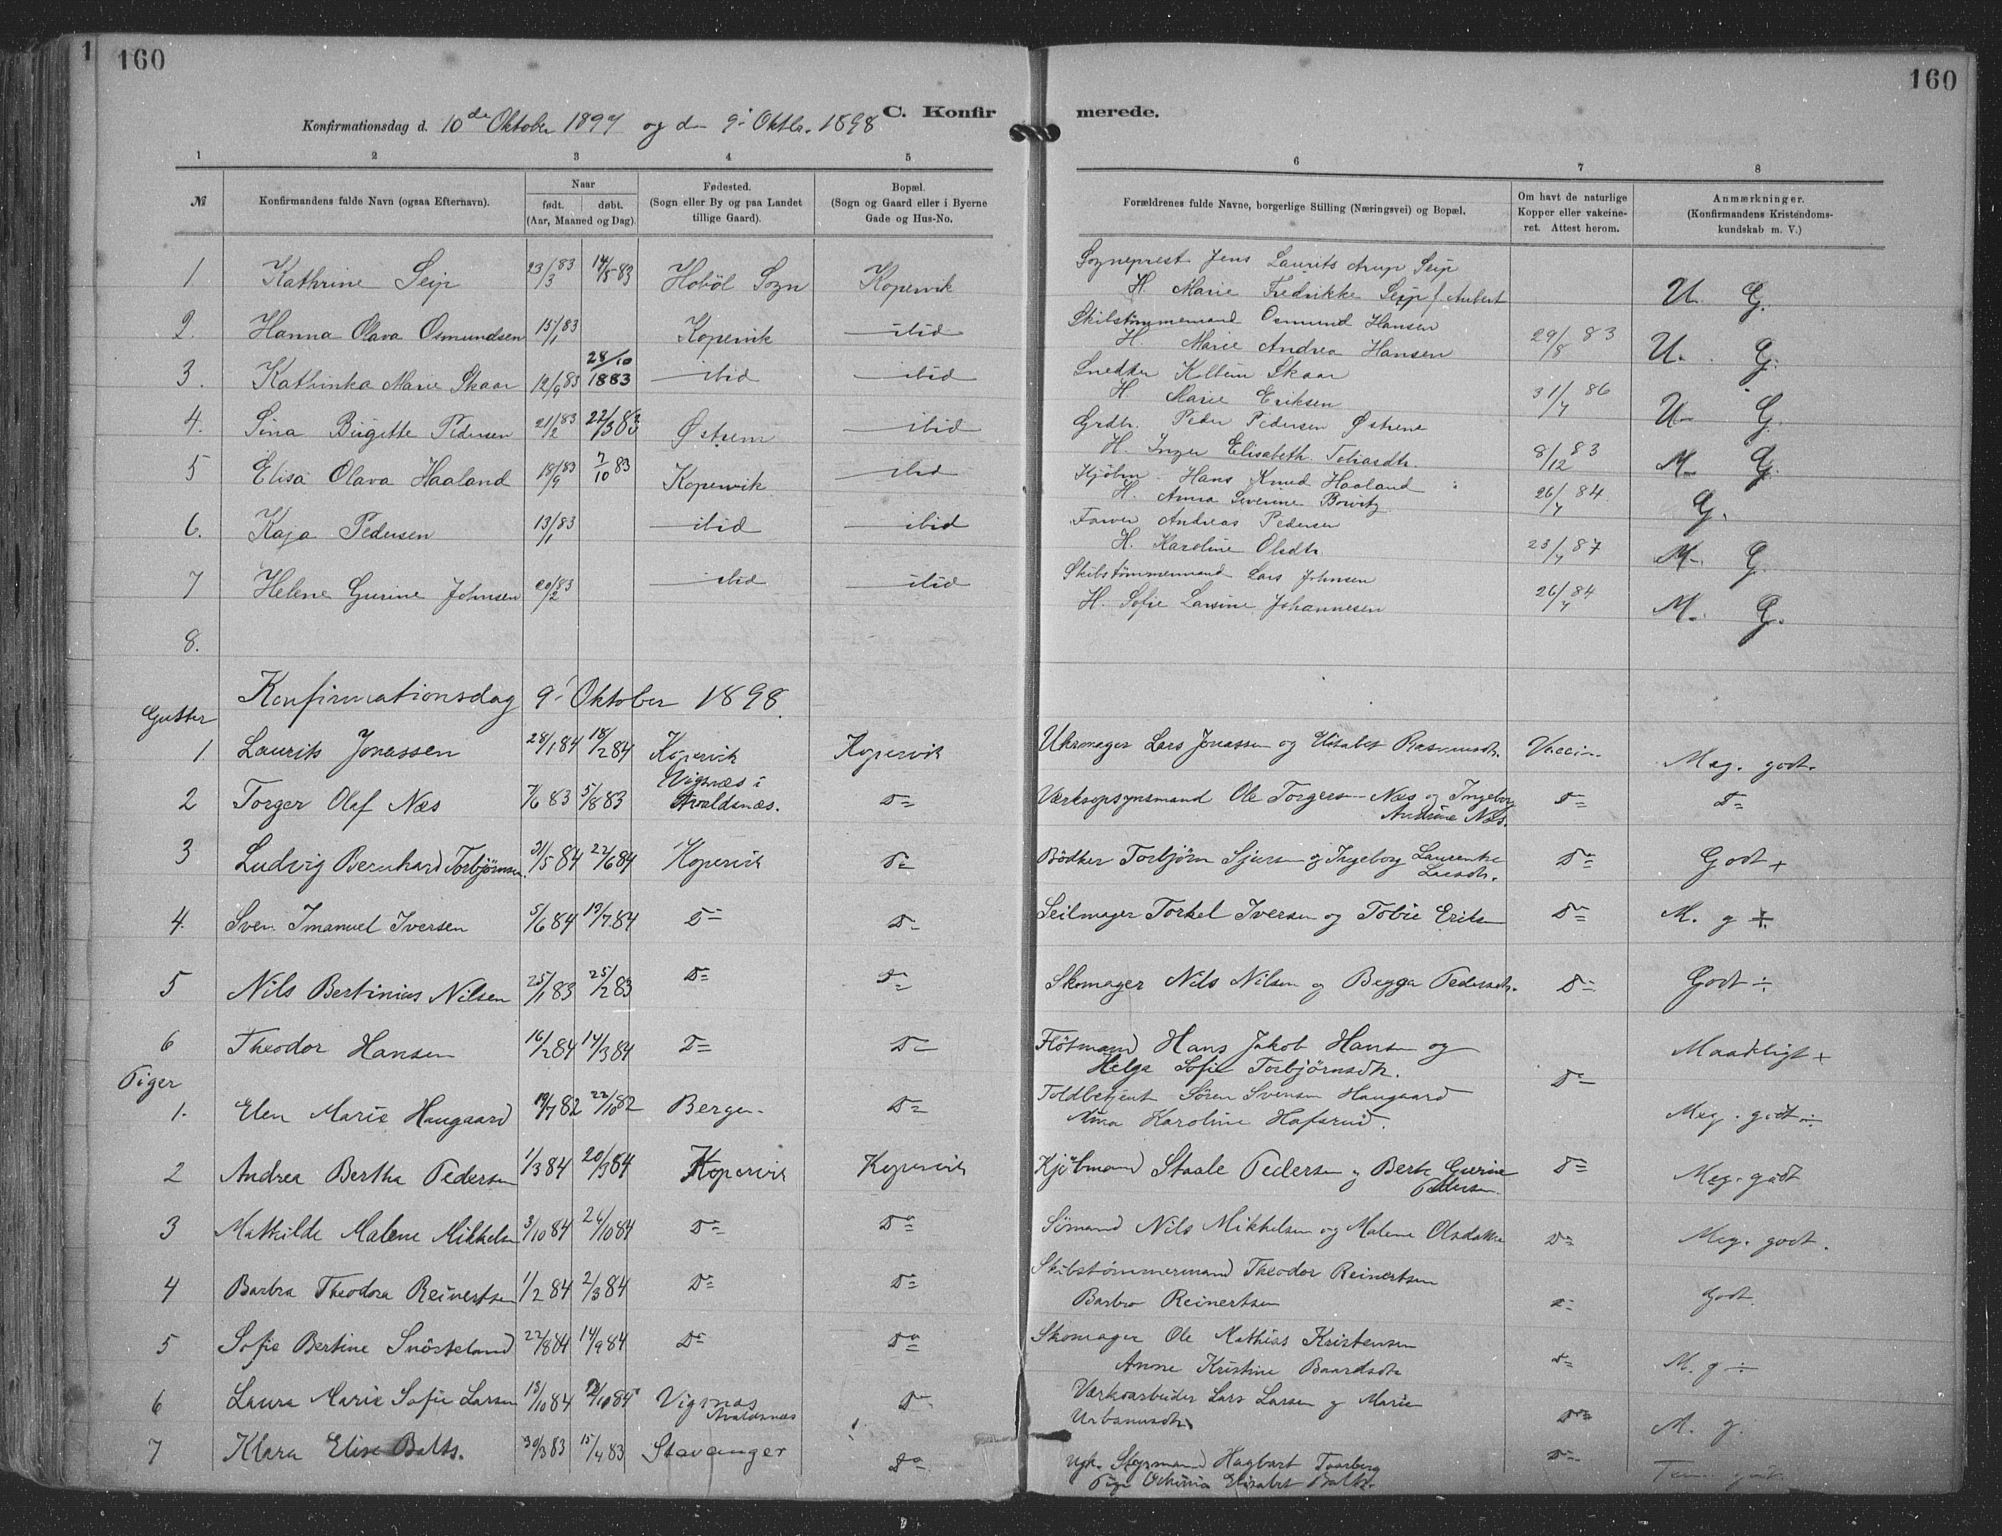 1
160
160
C. Konfir merede.
Konfirmationsdag d. 10de Oktober 1897 og d 9' Oktbr. 1898
1 2 3 4 5 6 7 8
№ Konfirmandens fulde Navn (ogsaa Efternavn). Naar født. døbt. (Aar, Maaned og Dag). Fødested. (Sogn eller By og paa Landet tillige Gaard). Bopæl. (Sogn og Gaard eller i Byerne Gade og Hus-No. Forældrenes fulde Navne, borgerlige Stilling (Næringsvei) og Bopæl. Om havt de naturlige Kopper eller vakcineret. Attest herom. Anmærkninger. (Konfirmandens Kristendomskundskab m. V.)
1 Kathrine Seip 23/3 83 14/5 83 Hoböl Sogn Kopervik Sogneprest Jens Laurits Arup Seip
H. Marie Fredrikke Seip f. Aubert U. G.
2. Hanna Olava Osmundsen 15/1 83 Kopervik ibid Skibstömmermand Osmund Hansen
H Marie Andrea Hansen 29/8 83 U. G.
3. Kathinka Marie Skaar 12/9 83 28/10 1883 ibid ibid Snedker Kolbein Skaar
H Marie Eriksen 31/7 86 U G.
4. Sina Birgitte Pedersen 21/2 83 22/3 83 Østrem ibid Grdbr. Peder Pedersen Østrem
H. Inger Elisabeth Tobiasdtr. 8/12 83 M. G.
5 Elisa Olava Haaland 18/9 83 7/10 83 Kopervik ibid Kjöbm. Hans Knud Haaland
H. Anna Severine 26/7 84 G.
6. Kaja Pedersen 13/1 83 ibid ibid Farver Andreas Pedersen
H. Karoline Olsdtr 23/7 87 M. G.
7 Helene Gurine Johnsen 20/2 83 ibid ibid Skibstömmermand Lars Johnsen
H. Sofie Larsine Johannesen 26/7 84 M. G.
8.
Konfirmationsdag 9' Oktober 1898.
Gutter
1 Laurits Jonassen 28/1 84 18/2 84 Kopervik Kopervik Uhrmager Lars Jonassen og Elisabet Rasmusdtr. Vaccin. Meg. godt.
2 Torger Olaf Næs 7/6 83 5/8 83 Vigsnæs i Avaldsnæs. Do Værksopsynsmand Ole Torgersen Næs og Ingeborg
Andrine Næs. Do Do
3 Ludvig Bernhard Torbjörnsen. 31/5 84 22/6 84 Kopervik Do Bödker Torbjörn Sjursen og Ingeborg Laurentze
Larsdtr. Do Godt +
4. Sven Imanuel Iversen 5/6 84 19/7 84 Do Do Seilmager Torkel Iversen og Tobie Eriksen Do M. g +
5 Nils Bertinius Nilsen 25/1 83 25/2 83 Do Do Skomager Nils Nilsen og Begga Pedersdtr. Do Godt ÷
6 Theodor Hansen 16/2 84 14/3 84 Do Do Flötmand Hans Jakob Hansen og
Helga Sofie Torbjörnsdtr. Do Maadeligt +
Piger
1. Elen Marie Haugaard 19/7 82 22/10 82 Bergen Do Toldbetjent Sören Svensen Haugaard
Ana Karoline Hafsrud. Meg. godt ÷
2 Andrea Bertha Pedersen 1/3 84 20/3 84 Kopervik Kopervik Kjöbmand Staale Pedersen og Berte Gurine
Pedersen. Do Meg. godt
3 Mathilde Malene Mikkelsen 3/10 84 26/10 84 Do Do Sömand Nils Mikkelsen og Malene Olsdatter Do Meg. godt.
4 Barbra Theodora Reinertsen 1/2 84 2/3 84 Do Do Skibstømmermand Theodor Reinertsen
Barbro Reinertsen Do Godt.
5 Sofie Bertine Snösteland 22/8 84 14/9 84 Do Do Skomager Ole Mathias Kristensen
Anne Kristine Baardsdtr Do M. g ÷
6 Laura Marie Sofie Larsen 13/10 84 Vigsnæs Avaldsnæs Do Værksarbeider Lars Larsen og Marie
Urbanusdtr Do M. g.
7 Klara Elise Balts. 30/3 83 15/4 83 Stavanger Do Ugk. Styrmand Hagbart
Pige Elisabet Do